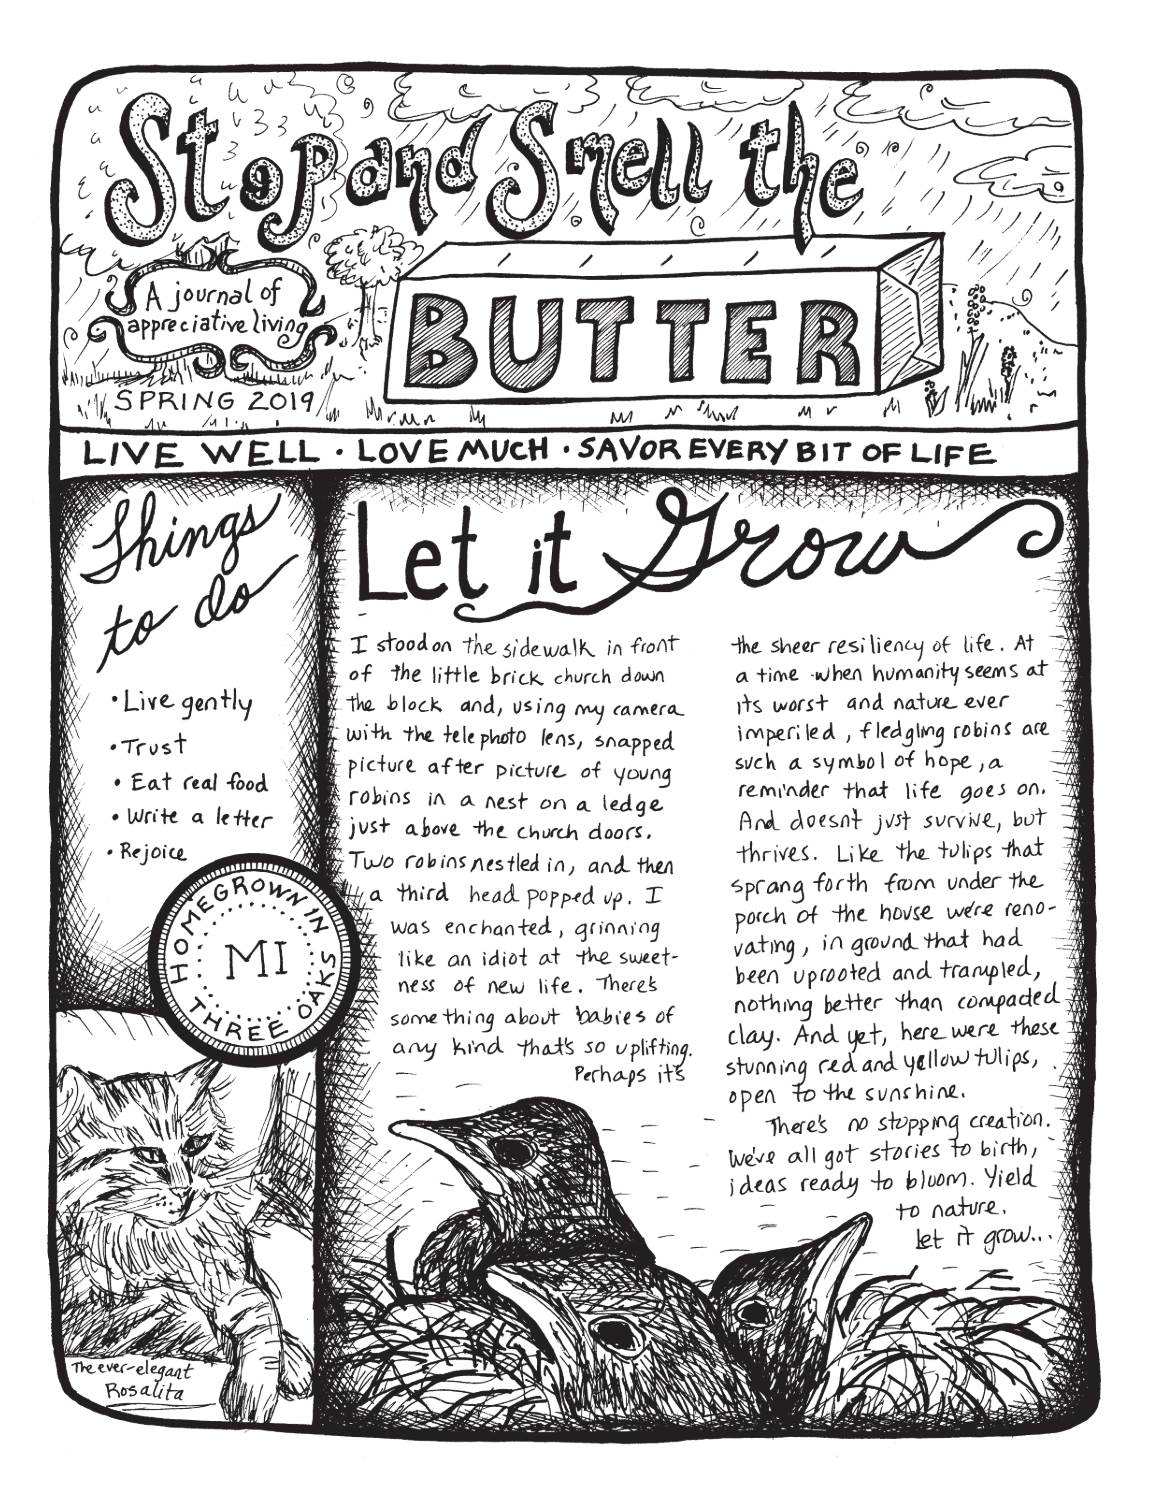 Stop and Smell the
BUTTER
A journal of
appreciative living
SPRING 2019
LIVE WELL · LOVE MUCH · SAVOR EVERY BIT OF LIFE
Things
to do
• Live gently
• Trust
• Eat real food
• Write a letter
• Rejoice
HOMEGROWN IN
MI
THREE OAKS
The ever-elegant
Rosalita
Let it Grow
I stood on the sidewalk in front
of the little brick church down
the block and, using my camera
with the telephoto lens, snapped
picture after picture of young
robins in a nest on a ledge
just above the church doors.
Two robins nestled in, and then
a third head popped up. I
was enchanted, grinning
like an idiot at the sweet-
ness of new life. There's
something about babies of
any kind that's so uplifting.
Perhaps it's
the sheer resiliency of life. At
a time when humanity seems at
its worst and nature ever
imperiled, fledgling robins are
such a symbol of hope, a
reminder that life goes on.
And doesn't just survive, but
thrives. Like the tulips that
sprang forth from under the
porch of the house we're reno-
vating, in ground that had
been uprooted and trampled,
nothing better than compacted
clay. And yet, here were these
stunning red and yellow tulips,
open to the sunshine.
There's no stopping creation.
We've all got stories to birth,
ideas ready to bloom. Yield
to nature.
Let it grow...